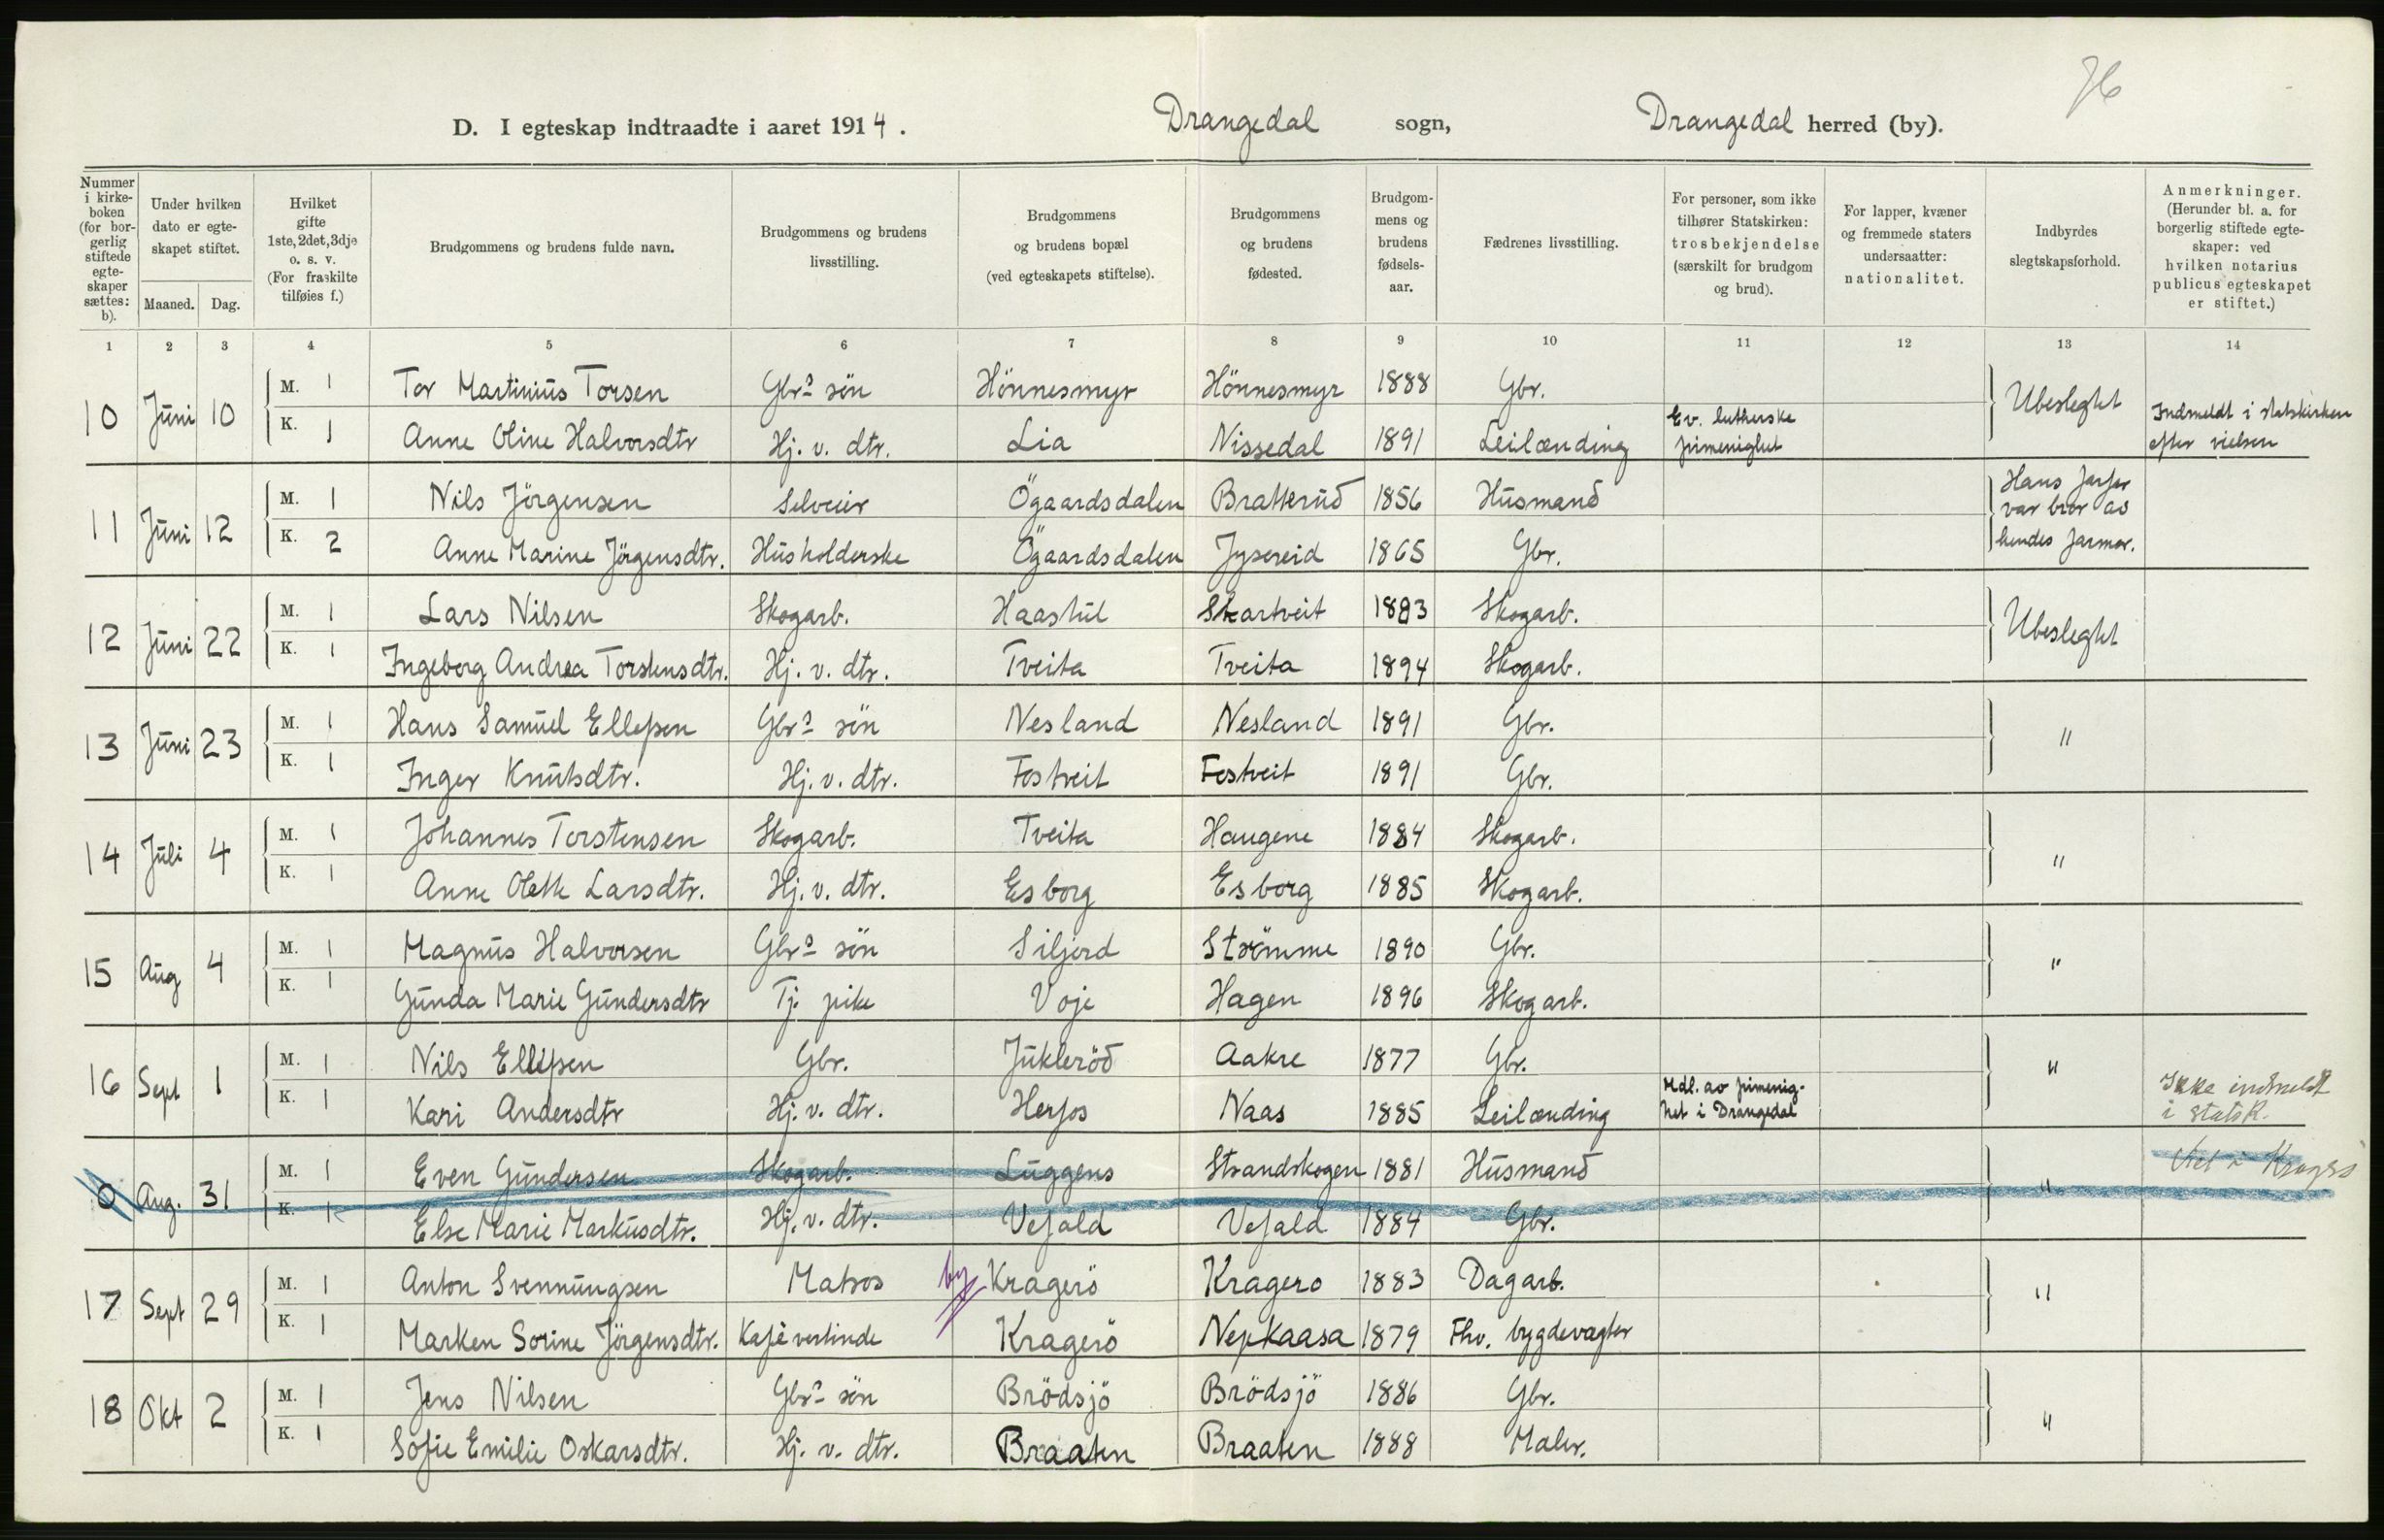 76
D. I egteskap indtraadte i aaret 1914. Drangedal sogn, Drangedal herred (by).
Nummer i kirkeboken (for borgerlig stiftede egteskaper sættes: b). | Under hvilken dato er egteskapet stiftet. Maaned. Dag. | Hvilket gifte 1ste, 2det, 3dje o. s. v. (For fraskilte tilføies f.) | Brudgommens og brudens fulde navn. | Brudgommens og brudens livsstilling. | Brudgommens og brudens bopæl (ved egteskapets stiftelse). | Brudgommens og brudens fødested. | Brudgommens og brudens fødselsaar. | Fædrenes livsstilling. | For personer, som ikke tilhører Statskirken: trosbekjendelse (særskilt for brudgom og brud). | For lapper, kvæner og fremmede staters undersaatter: nationalitet. | Indbyrdes slegtskapsforhold. | Anmerkninger. (Herunder bl. a. for borgerlig stiftede egteskaper: ved hvilken notarius publicus egteskapet er stiftet.)
1 2 3 4 5 6 7 8 9 10 11 12 13 14
10 Juni 10 M. 1 Tor Martinius Torsen Gbrs sön Hönnesmyr Hönnesmyr 1888 Gbr. Ubeslegtet
K. 1 Anne Oline Halvorsdtr Hj. v. dtr. Lia Nissedal 1891 Leilænding Ev. lutherske frimenighet Indmeldt i statskirken efter vielsen
11 Juni 12 M. 1 Nils Jörgensen Selveier Ögaardsdalen Bratterud 1856 Husmand Hans farfar var bror av hendes farmor.
K. 2 Anne Marine Jörgensdtr. Husholderske Ögaardsdalen 1865 Gbr.
12 Juni 22 M. 1 Lars Nilsen Skogarb. Haastul Skartveit 1883 Skogarb. Ubeslegtet
K. 1 Ingeborg Andrea Torstensdtr. Hj. v. dtr. Tveita Tveita 1894 Skogarb.
13 Juni 23 M. 1 Hans Samuel Ellefsen Gbrs sön Nesland Nesland 1891 Gbr. "
K. 1 Inger Knutsdtr. Hj. v. dtr. Fostveit Fostveit 1891 Gbr.
14 Juli 4 M. 1 Johannes Torstensen Skogarb. Tveita Haugene 1884 Skogarb. "
K. 1 Anne Olette Larsdtr. Hj. v. dtr. Esborg Esborg 1885 Skogarb.
15 Aug 4 M. 1 Magnus Halvorsen Gbrs sön Siljord Strömme 1890 Gbr. "
K. 1 Gunda Marie Gundersdtr Tj. pike Voje Hagen 1896 Skogarb.
16 Sept 1 M. 1 Nils Ellefsen Gbr. Jukleröd Aakre 1877 Gbr. "
K. 1 Kari Andersdtr Hj. v. dtr. Herfos Naas 1885 Leilænding Mdl. av frimenighet i Drangedal Ikke indmeldt i statsk.
0 Aug. 31 M. 1 Even Gundersen Skogarb. Luggens Strandskogen 1881 Husmand " Viet i Kragerö
K. 1 Else Marie Markusdtr. Hj. v. dtr. Vefald Vefald 1884 Gbr.
17 Sept 29 M. 1 Anton Svennungsen Matros by Kragerö Kragerö 1883 Dagarb. "
K. 1 Marken Sorine Jörgensdtr. Kafévertinde Kragerö Nepkaasa 1879 Fhv. bygdevagter
18 Okt 2 M. 1 Jens Nilsen Gbrs sön Brödsjö Brödsjö 1886 Gbr. "
K. 1 Sofie Emilie Oskarsdtr. Hj. v. dtr. Braaten Braaten 1888 Maler.